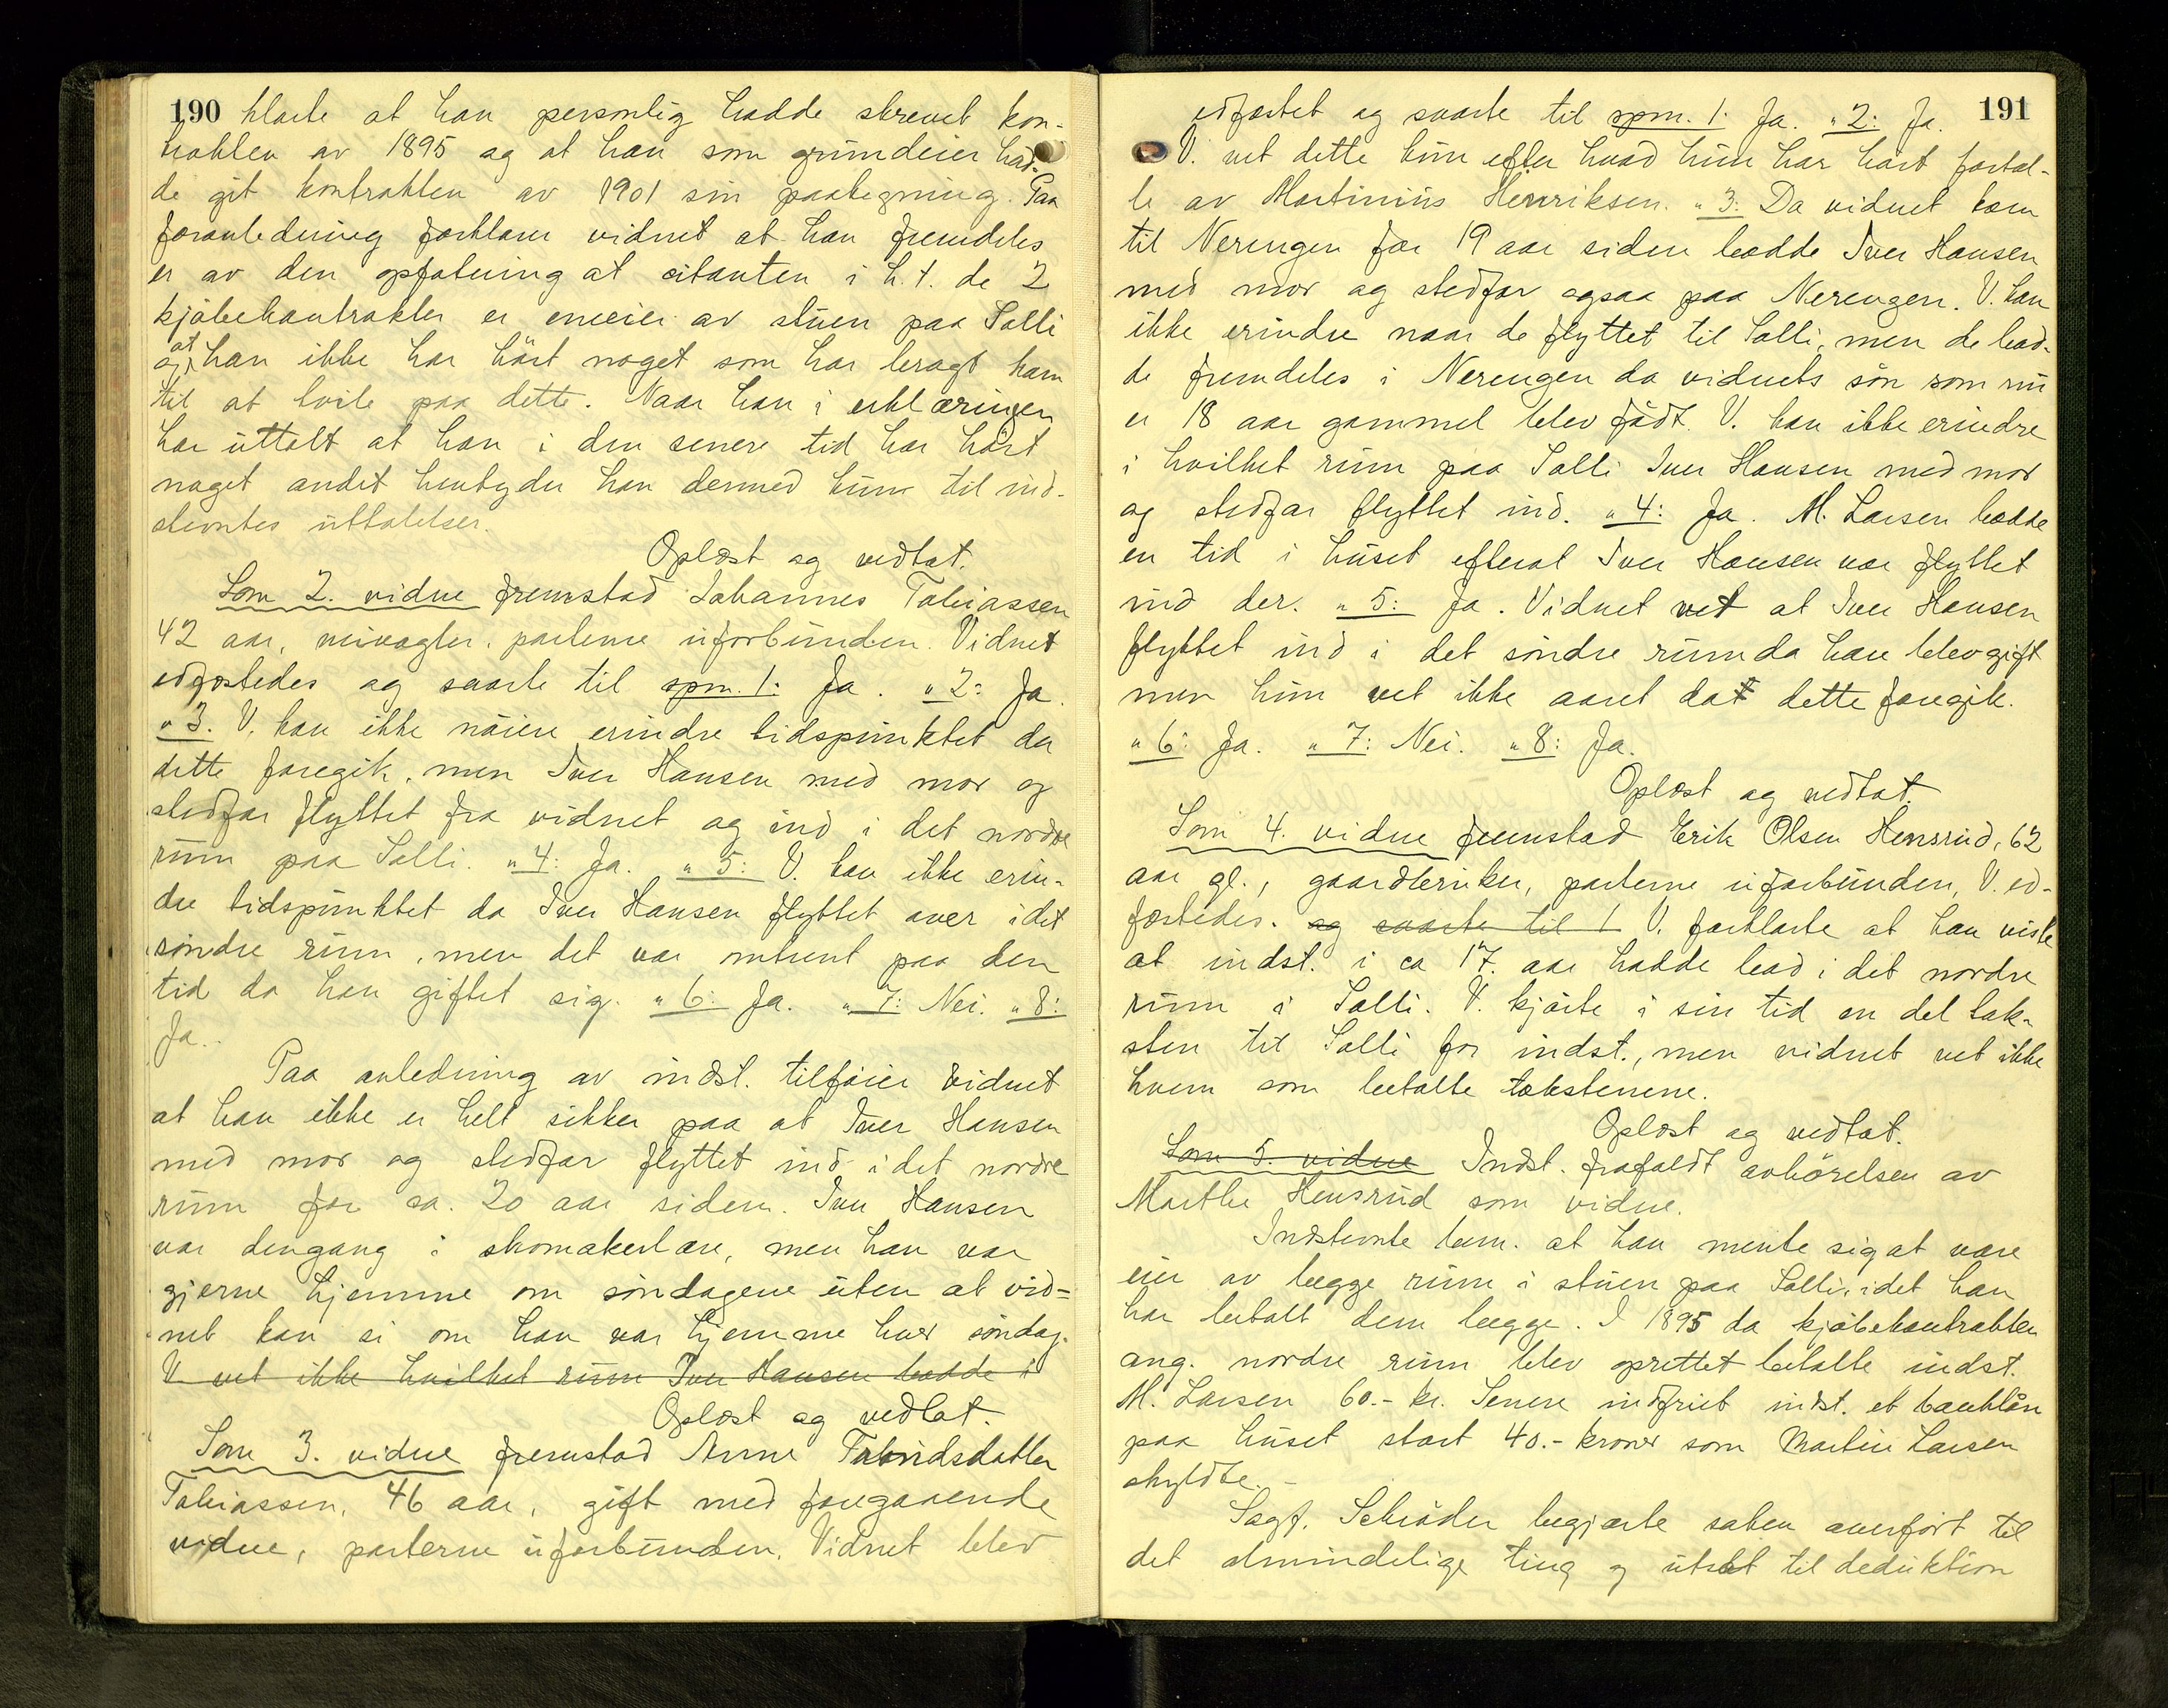 190 klarte at han personlig hadde skrevet kon-
trakten av 1895 og at han som grundeier had-
de git kontrakten av 1901 sin paategning. Paa
foranledning forklarer vidnet at han fremdeles
er av den opfatning at citanten i h.t. de 2
kjöbekontrakter er eneeier av stuen paa Solli
og at han ikke har hört noget som har bragt ham
til at tvile paa dette. Naar han i erklæringen
har uttalt at han i den senere tid har hört
noget andet hentyder han dermed kun til ind-
stevntes uttalelser.
Oplæst og vedtat.
Som 2. vidne fremstod Johannes Tobiassen
42 aar, veivogter, parterne uforbunden. Vidnet
edfæstedes og svarte til spm. 1: Ja. " 2: Ja.
" 3. V. kan ikke nöiere erindre tidspunktet da
dette foregik, men Iver Hansen med mor og
stedfar flyttet fra vidnet og ind i det nordre
rum paa Solli. " 4: Ja. " 5: V. kan ikke erin-
dre tidspunktet da Iver Hansen flyttet over i det
söndre rum, men det var omtrent paa den
tid da han giftet sig. " 6: Ja. " 7: Nei. " 8:
Ja.
Paa anledning av indst. tilföier vidnet
at han ikke er helt sikker paa at Iver Hansen
med mor og stedfar flyttet ind i det nordre
rum for ca. 20 aar siden. Iver Hansen
var dengang i skomakerlære, men han var
gjerne hjemme om söndagene uten at vid-
net kan si om han var hjemme hver söndag.
V vet ikke hvilket rum Iver Hansen bodde i
Oplæst og vedtat.
Som 3. vidne fremstod Anne
Tobiassen, 46 aar, gift med foregaaende
vidne, parterne uforbunden. Vidnet blev
191
edfæstet og svarte til spm. 1: Ja. " 2: Ja.
V. vet dette kun efter hvad hun har hört fortal-
te av Martinius Henriksen. " 3: Da vidnet kom
til Nerengen for 19 aar siden bodde Iver Hansen
med mor og stedfar ogsaa paa Nerengen. V. kan
ikke erindre naar de flyttet til Solli, men de bod-
de fremdeles i Nerengen da vidnets sön som nu
er 18 aar gammel blev födt. V. kan ikke erindre
i hvilket rum paa Solli Iver Hansen med mor
og stedfar flyttet ind. " 4: Ja. M. Larsen bodde
en tid i huset efterat Iver Hansen var flyttet
ind der. " 5: Ja. Vidnet vet at Iver Hansen
flyttet ind i det söndre rum da han blev gift
men hun vet ikke aaret da dette foregik.
" 6: Ja. " 7: Nei. " 8: Ja.
Oplæst og vedtat.
Som 4. vidne fremstod Erik Olsen Hensrud, 62
aar gl., gaardbruker, parterne uforbunden, V. ed-
fæstedes. og svarte til 1 V. forklarte at han viste
at indst. i ca 17. aar hadde bod i det nordre
rum i Solli. V. kjörte i sin tid en del tak-
sten til Solli for indst., men vidnet vet ikke
hvem som betalte takstenene.
Oplæst og vedtat.
Som 5. vidne Indst. frafaldt avhörelsen av
Marthe Hensrud som vidne.
Indstevnte bem. at han mente sig at være
eier av begge rum i stuen paa Solli, idet han
har betalt dem begge. I 1895 da kjöbekontrakten
ang. nordre rum blev oprettet betalte indst.
M. Larsen 60.- kr. Senere indfriet indst. et banklån
paa huset stort 40.- kroner som Martin Larsen
skyldte.-
Sagf. Schröder begjærte saken overfört til
det almindelige ting og utsat til deduktion